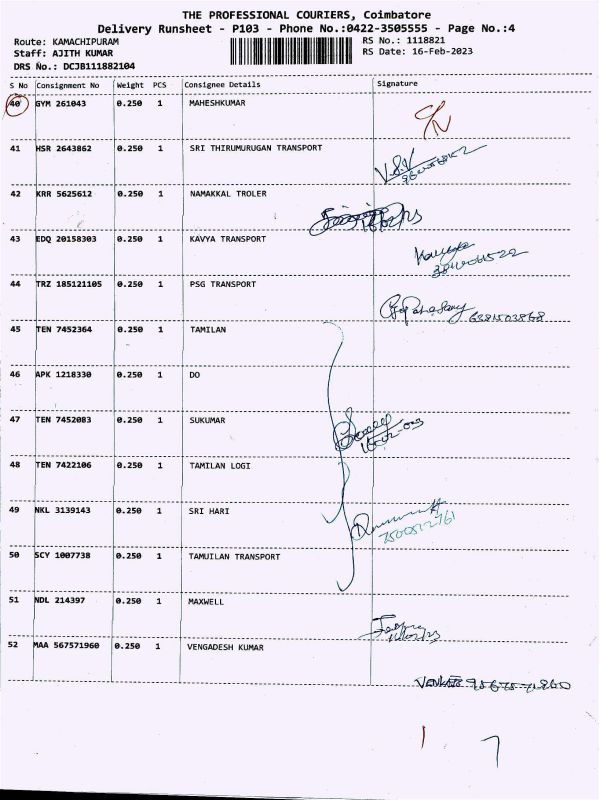 THE PROFESSIONAL COURIERS, Coimbatore
Delivery Runsheet - P103 - Phone No.:0422-3505555 - Page No.:4
Route: KAMACHIPURAM RS No.: 1118821
Staff: AJITH KUMAR RS Date: 16-Feb-2023
DRS No.: DCJB111882104
S No Consignment No Weight PCS Consignee Details Signature
40 GYM 261043 0.250 1 MAHESHKUMAR
C/N
41 HSR 2643862 0.250 1 SRI THIRUMURUGAN TRANSPORT
42 KRR 5625612 0.250 1 NAMAKKAL TROLER
43 EDQ 20158303 0.250 1 KAVYA TRANSPORT
44 TRZ 185121105 0.250 1 PSG TRANSPORT
45 TEN 7452364 0.250 1 TAMILAN
46 APK 1218330 0.250 1 DO
47 TEN 7452083 0.250 1 SUKUMAR
48 TEN 7422106 0.250 1 TAMILAN LOGI
49 NKL 3139143 0.250 1 SRI HARI
50 SCY 1007738 0.250 1 TAMUILAN TRANSPORT
51 NDL 214397 0.250 1 MAXWELL
52 MAA 567571960 0.250 1 VENGADESH KUMAR
1 7